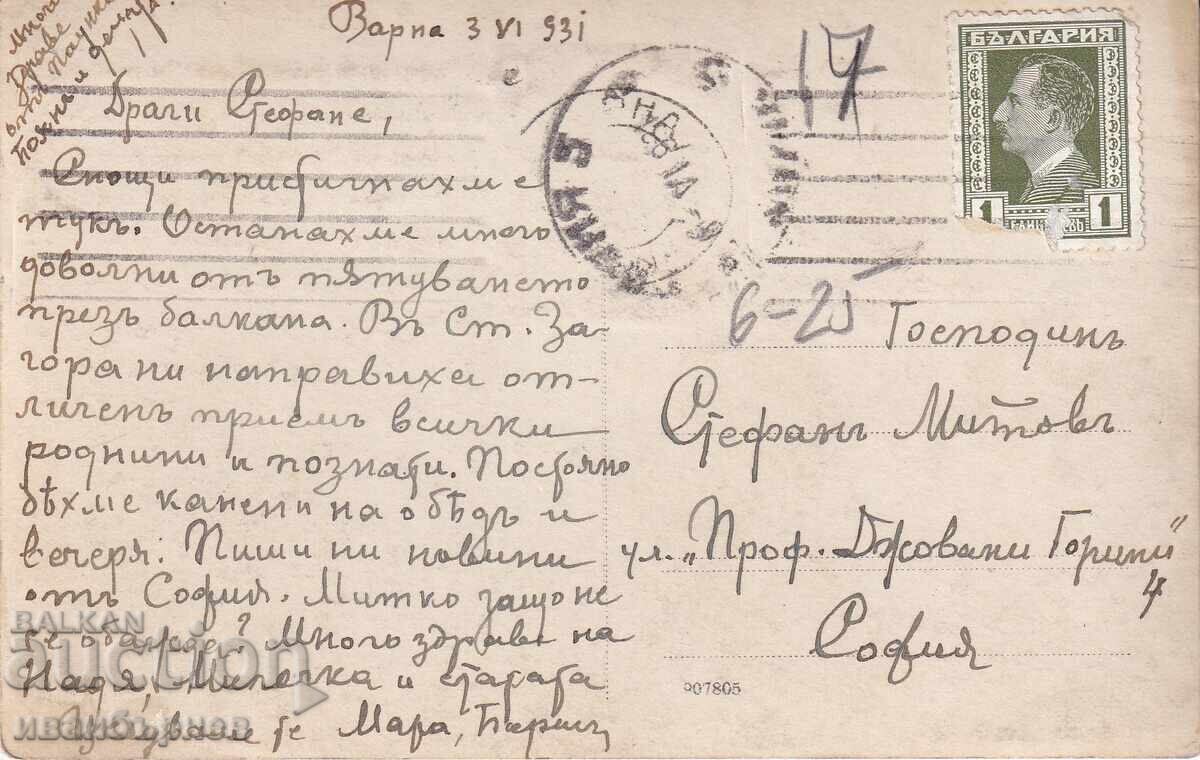 Варна 3 VI 931
Много
здраве
отъ
Драги Стефане,
Снощи пристигнахме
тукъ. Останахме много
доволни отъ пѫтуването
презъ балкана. Въ Ст. За-
гора ни направиха от-
личенъ приемъ всички
роднини и познати. Постоянно
бѣхме канени на обѣдъ и
вечеря. Пиши ни новини
отъ София. Митко защо не
се обажда? Много здраве на
Надя, и старата
Цѣлуваме те Мара,
17
БЪЛГАРИЯ
1 1
6-25
Господинъ
Стефанъ Митовъ
ул. "Проф. Джовани Горини"
4
София
907805
BALKAN
auction
иванбърнов